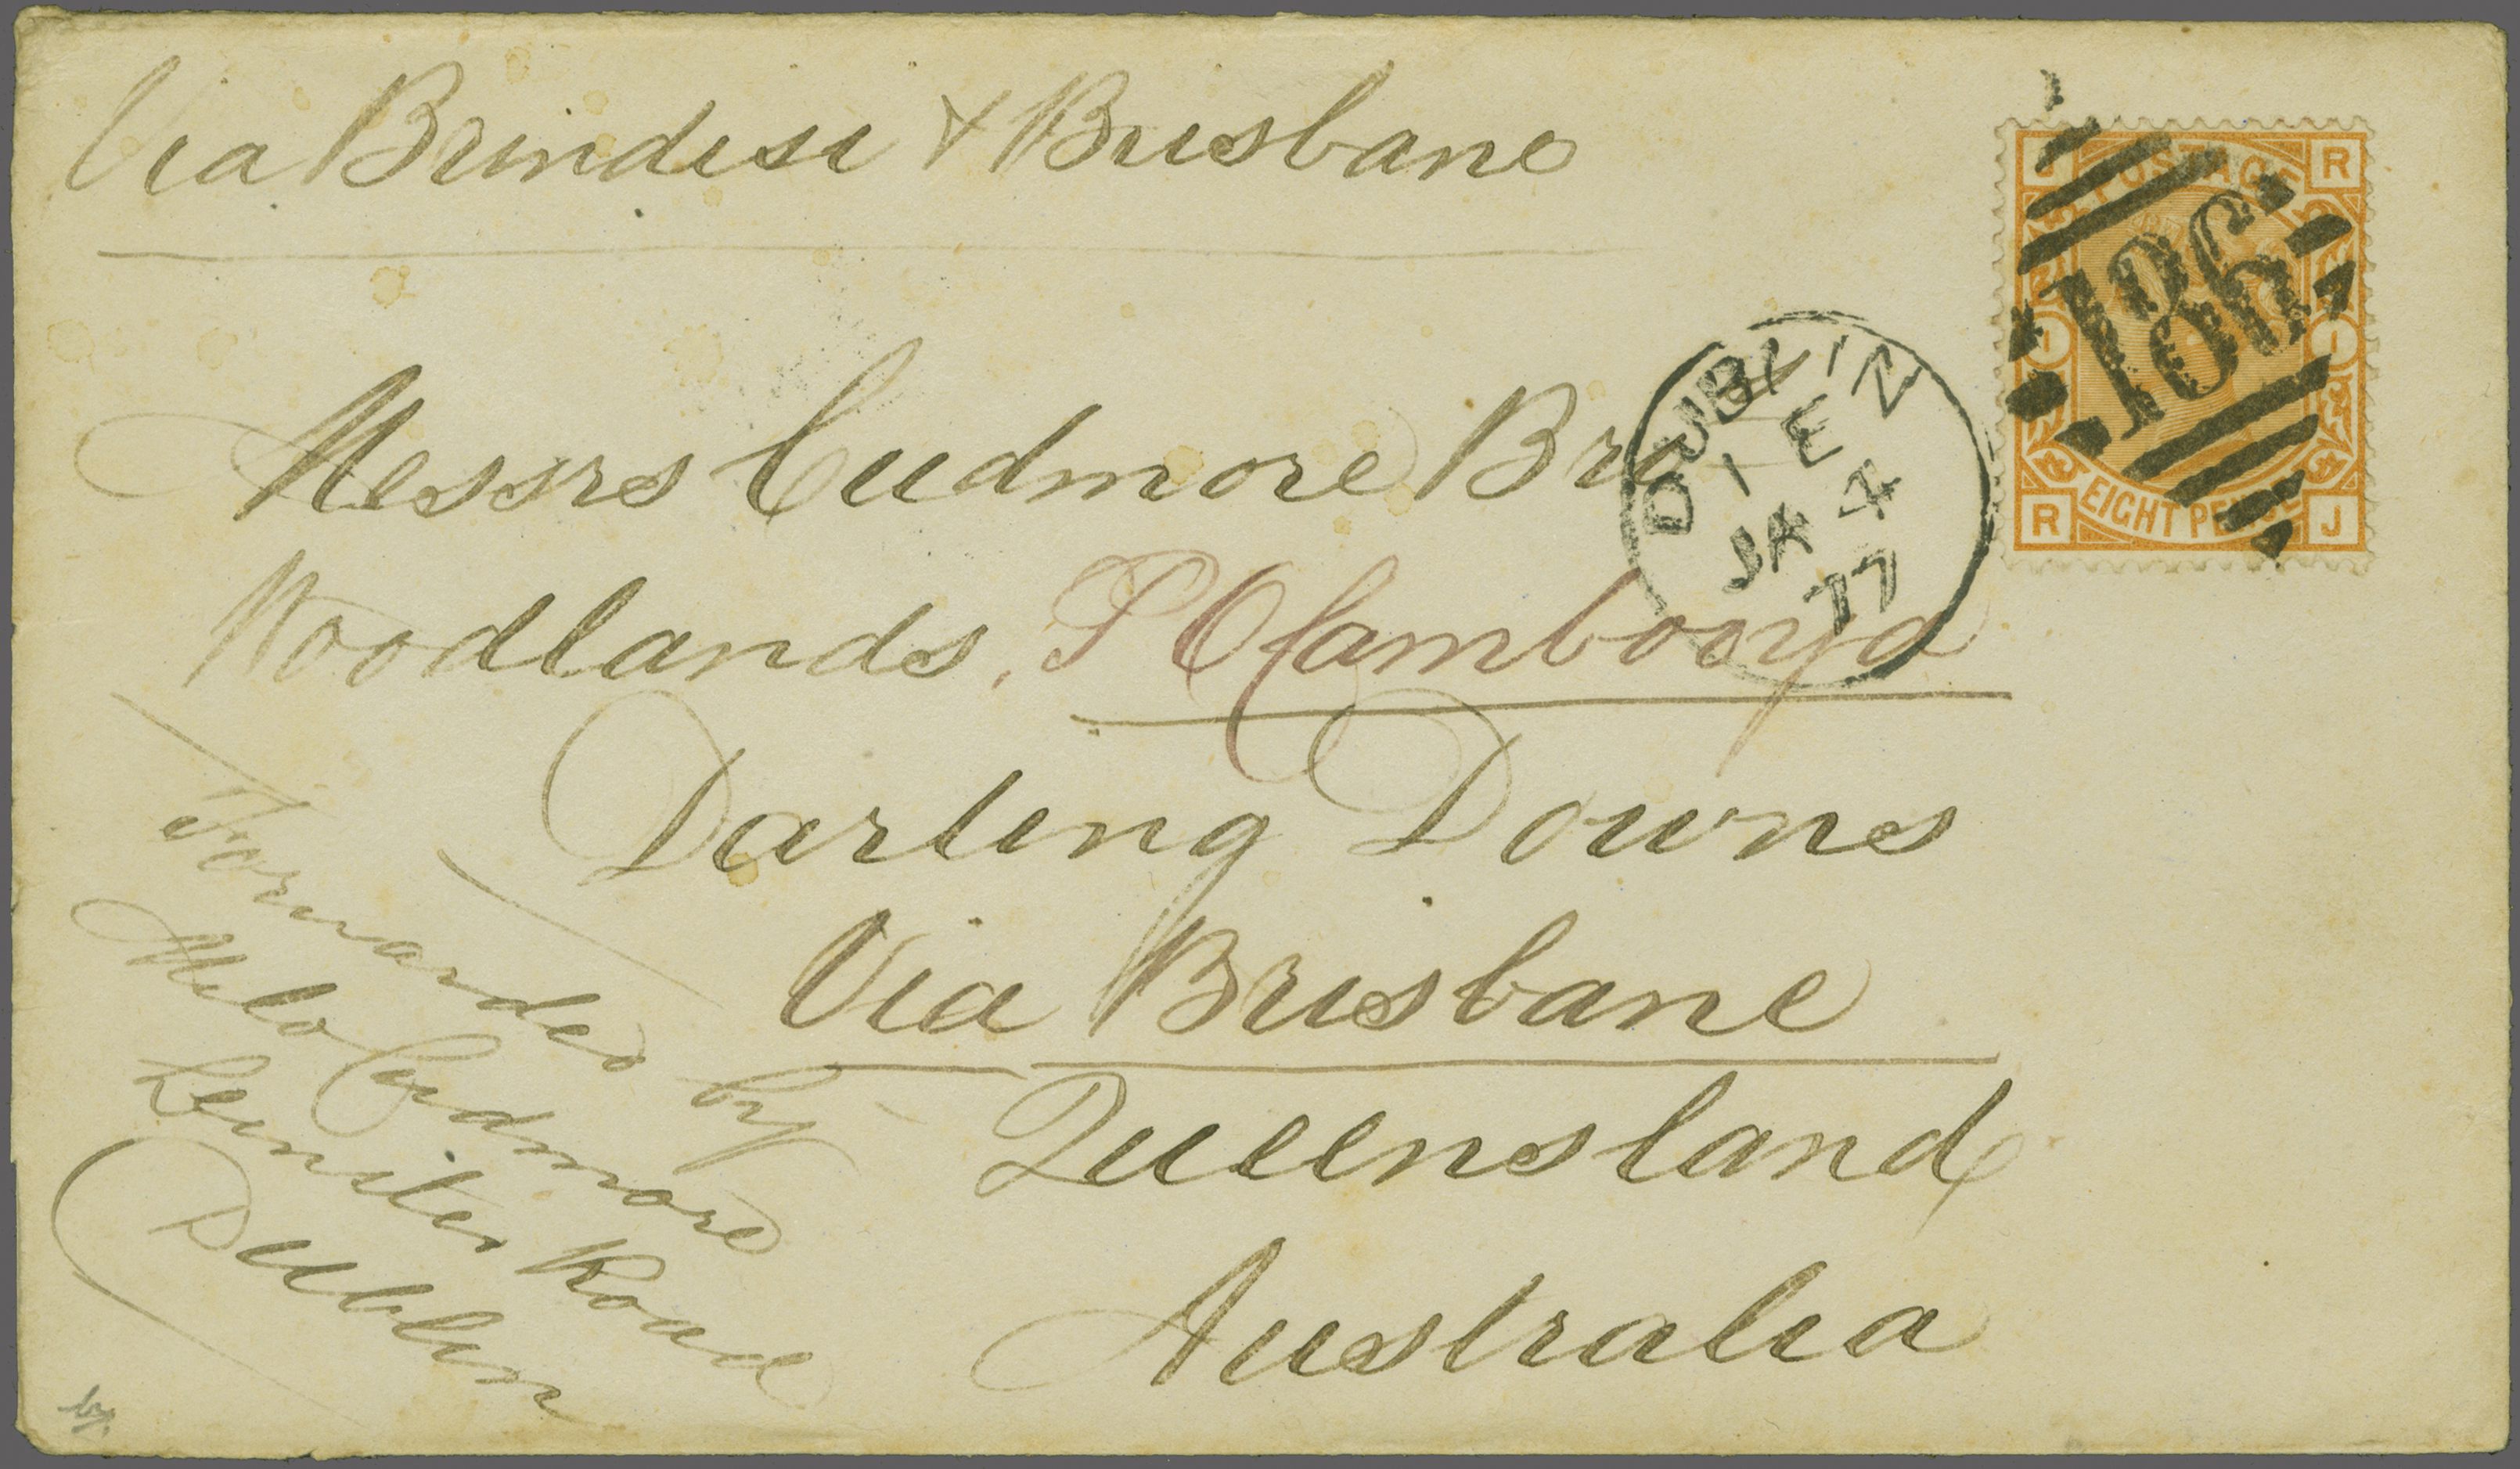 Via Brindisi & Brisbane
POSTAGE
J R
186
EIGHT PENCE
R J
DUBLIN
1 E
JA 4
77
Messrs Cudmore Bros
Woodlands, P O Cambooya
Darling Downs
Via Brisbane
Queensland
Australia
Forwarded by
Milo Cudmore
Leinster Road
Dublin